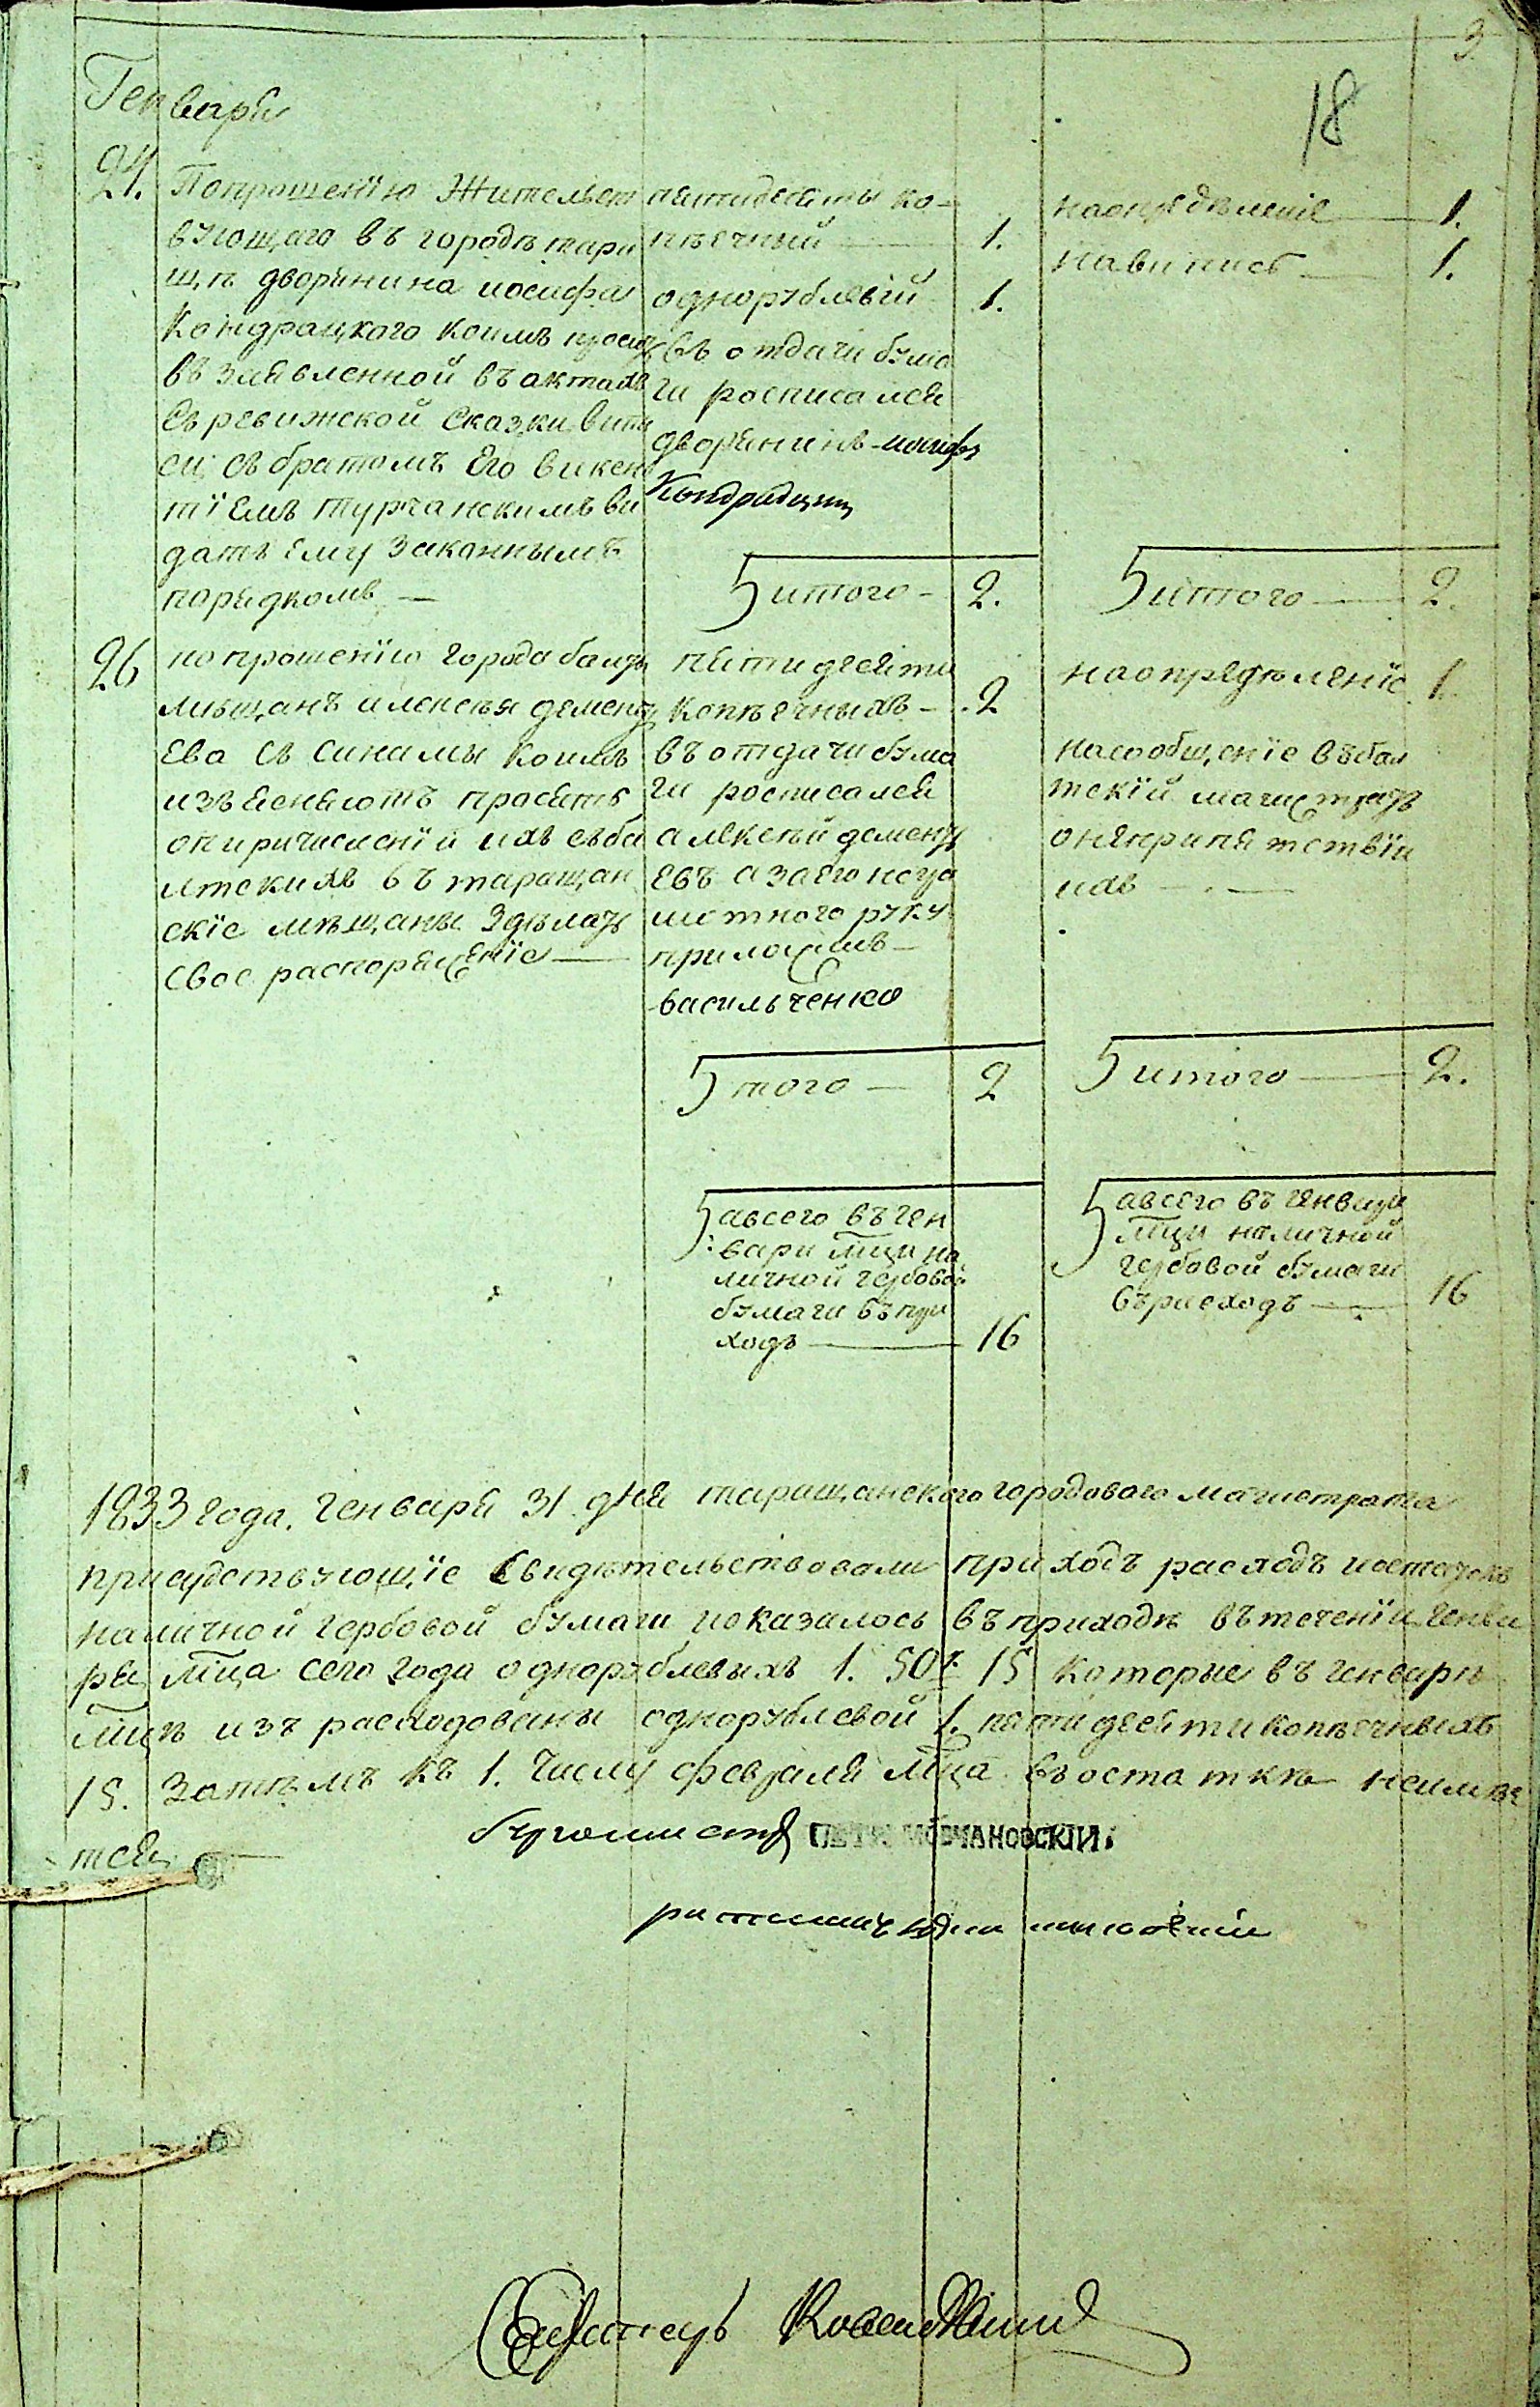 3
18
Генваря
24.
Попрошенїю Жительст
вующаго въ городѣ тара
щѣ дворянина иосифа
Кондрацкого коимъ просит
въ заявленной въ актахъ
съ ревижской сказки випи
си съ братомъ Его викен
тїемъ турчанскимъ ви
дать ему законнымъ
порядкомъ —
пятидесяты ко-
пѣечный — 1.
однорублевїй 1.
въ отдачи бума
ги росписался
дворянинъ иосифъ
Кондрацкий
наопредѣленїе — 1.
навипись — 1.
итого — 2.
итого — 2.
26
попрошенїю города балты
мѣщанъ алексѣя дементъ
Ева съ синамы коимъ
изъясняютъ просятъ
опричисленїи ихъ съба
лтскихъ въ таращан
скїе мѣщаны здѣлать
свое распоряженїе —
пятидесяти
копѣечныхъ — 2
въ отдачи бума
ги росписался
алексѣй дементъ
Евъ а заего негра
мотного руку
приложилъ —
василъченко
наопредѣленїе 1.
насообщенїе въбал
тскїй магистратъ
онепрепятствїи
ихъ —
того — 2
итого — 2.
авсего въ ген
вари мци на
личной гербовой
бумаги въпри
ходъ — 16
авсего въ генвари
мци наличной
гербовой бумаги
въросходъ — 16
1833 года. генваря 31 дня таращанского городоваго магистрата
присудствующїе свидѣтельствовали приходъ расходъ иостатокъ
наличной гербовой бумаги показалось въ приходѣ въ теченїи генва
ря мца сего года однорублевыхъ 1. 50к 15 которые въ генварѣ
мцѣ изъ расходованы однорублевой 1. пятидесятикопѣечныхъ
15. Затѣмъ къ 1. числу февраля мца въ остаткѣ неимѣе
тся —
бургомистръ ПЕТРЪ МОВЧАНОВСКІЙ.
ратманъ
Секретарь